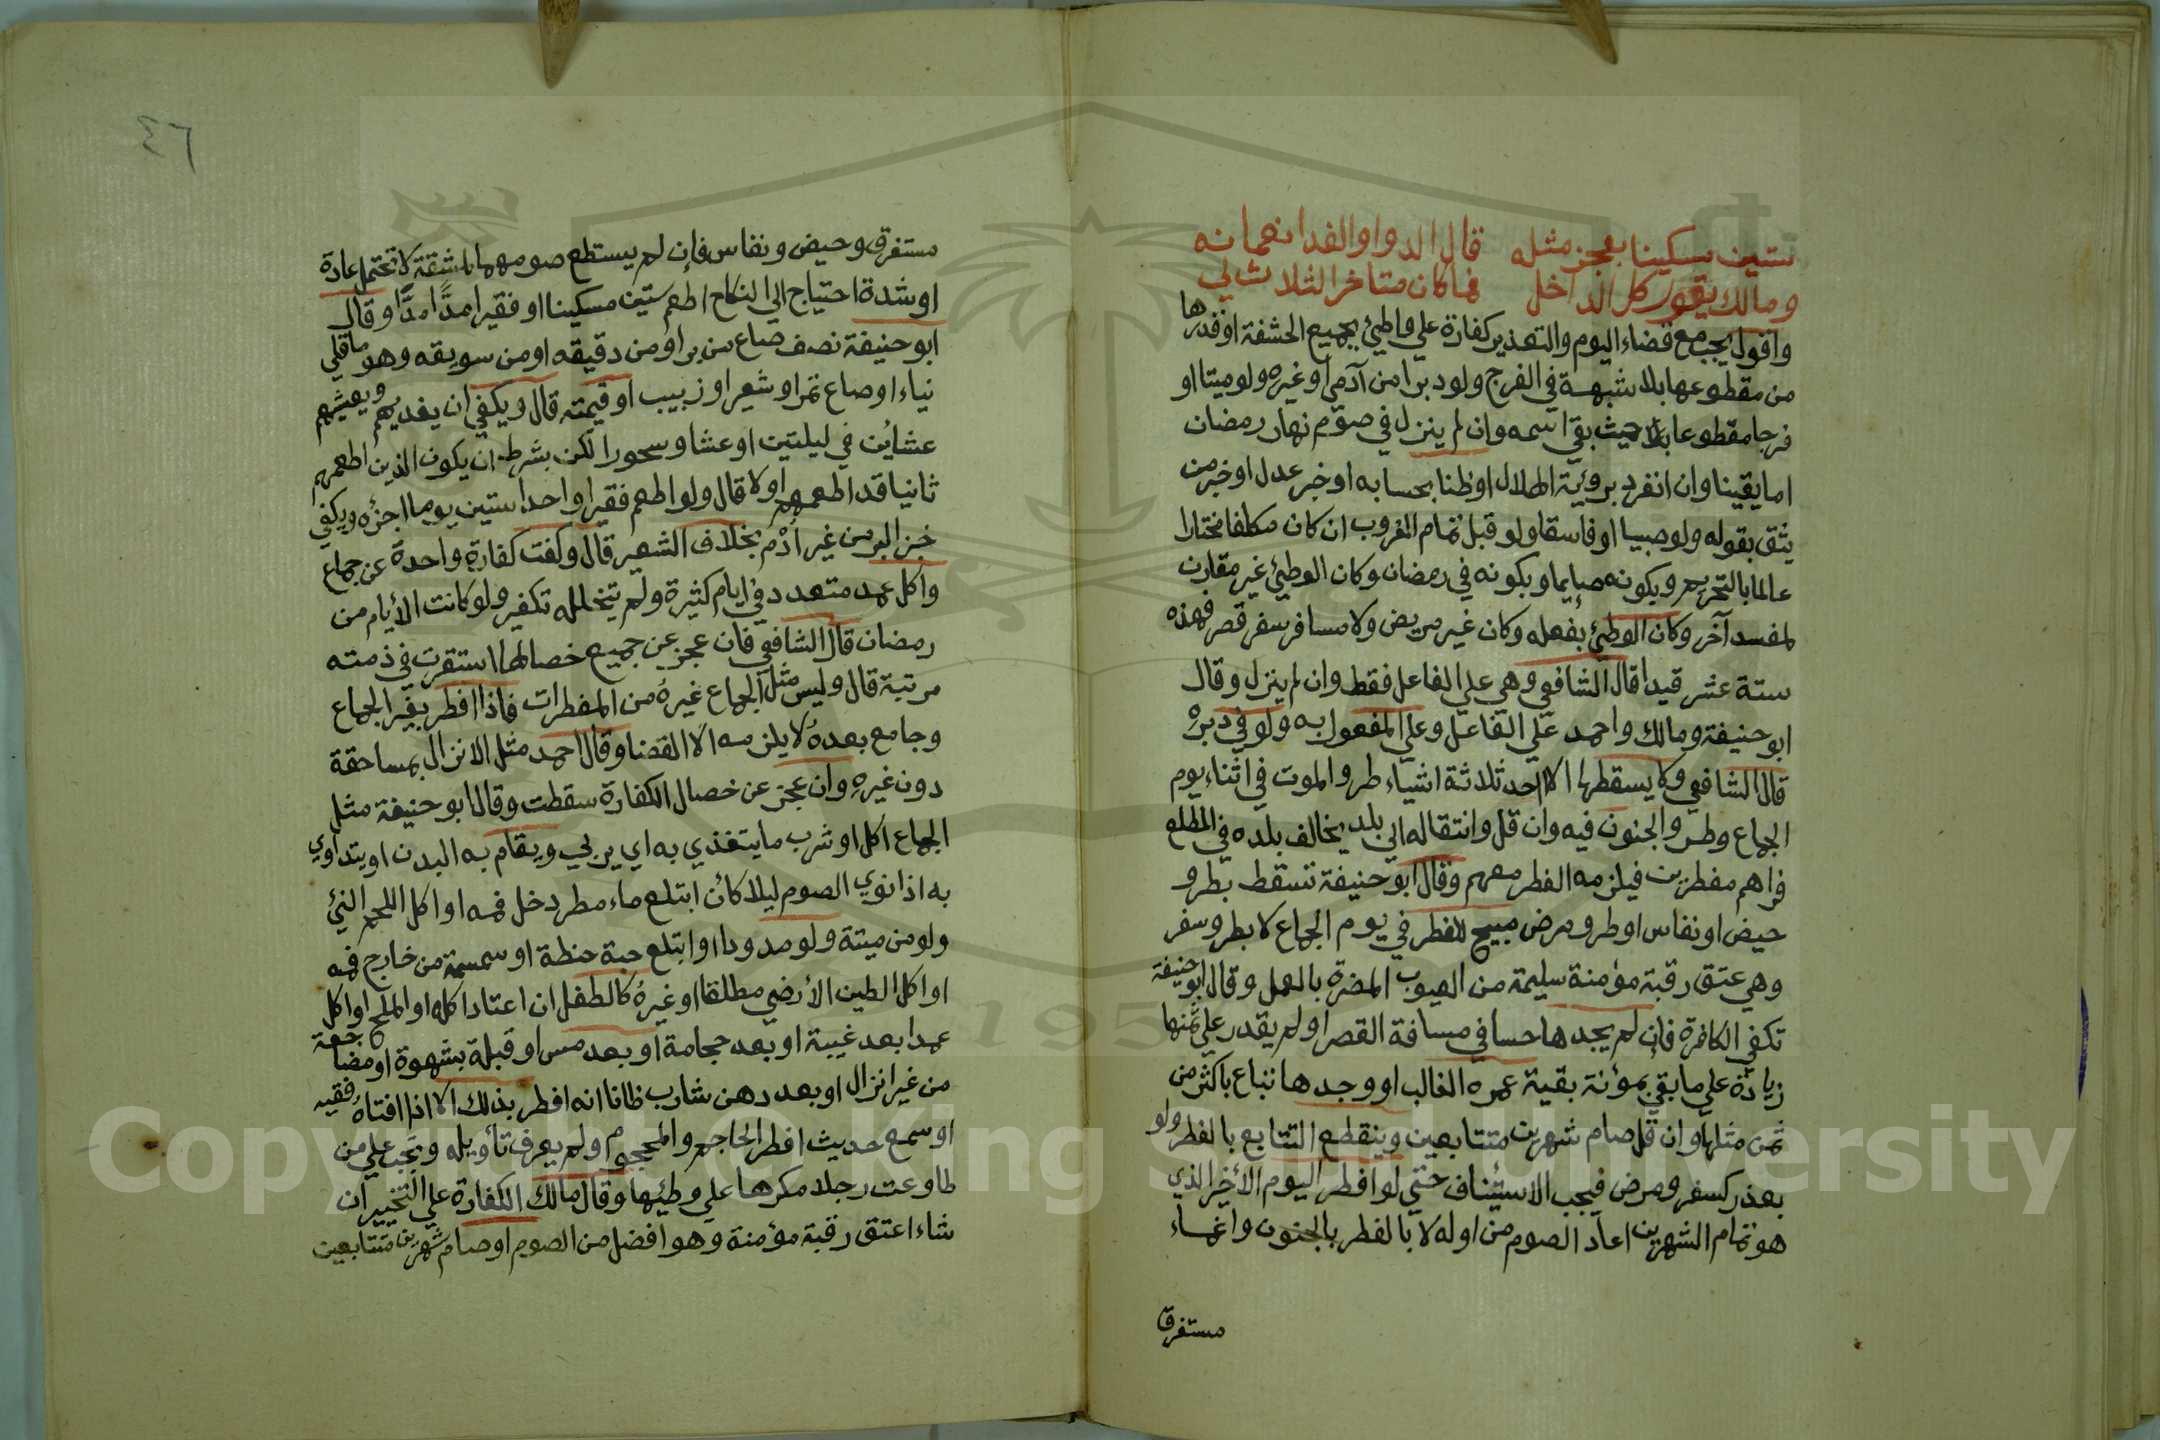 ستين مسكينا بعجز مثله قال الدوا والغدا نعمانه
ومالك يقول كل الداخل فما كان متاخر الثلاث لي
واقول يجب مع قضاء اليوم والتعذير كفارة علي واطيئ بجميع الحشفة او قدرها
من مقطوعها بلا شبهة في الفرج ولو دبرا من آدمي او غيره ولو ميتا او
فرجا مقطوعا حيث بقي اسمه وان لم ينزل في صوم نهار رمضان
اما يقينا وان انفرد برؤية الهلال او ظنا بحسابه او خبر عدل او خبر من
يثق بقوله ولو صبيا او فاسقا ولو قبل تمام الغروب ان كان مكلفا مختارا
عالما بالتحريم وبكونه صايما وبكونه في رمضان وكان الوطيئ غير مقارن
لمفسد آخر وكان الوطيئ بفعله وكان غير مريض ولا مسافر سفر قصر فهذه
ستة عشر قيدا قال الشافعي وهي علي الفاعل فقط وان لم ينزل وقال
ابو حنيفة ومالك واحمد علي الفاعل وعلي المفعول به ولو في دبره
قال الشافعي ولا يسقطها الا احد ثلاثة اشياء طرو الموت في اثناء يوم
الجماع وطرو الجنون فيه وان قل وانتقاله الي بلد يخالف بلده في المطلع
فراهم مفطرين فيلزمه الفطر معهم وقال ابو حنيفة تسقط بطرو
حيض او نفاس او طرو مرض مبيح للفطر في يوم الجماع لا بطرو سفر
وهي عتق رقبة مؤمنة سليمة من العيوب المضرة بالعمل وقال ابو حنيفة
تكفي الكافرة فان لم يجدها حسا في مسافة القصر او لم يقدر علي ثمنها
زيادة علي ما بقي بمؤنة بقية عمره الغالب او وجدها تباع باكثر من
ثمن مثلها وان قل صام شهرين متتابعين وينقطع التتابع بالفطر ولو
بعذر كسفر ومرض فيجب الاستئناف حتي لو افطر اليوم الأخير الذي
هو تمام الشهرين اعاد الصوم من اوله لا بالفطر بالجنون واغماء
مستغرق
٤٦
مستغرق وحيض ونفاس فان لم يستطع صومهما لمشقة لا تحتمل عادة
او شدة احتياج الي النكاح اطعم ستين مسكينا او فقيرا مدًّا مدًّا وقال
ابو حنيفة نصف صاع من بر او من دقيقه او من سويقه وهو ما قلي
نياء او صاع تمر او شعير او زبيب او قيمته قال ويكفي ان يغديهم ويعشيهم
عشاين في ليلتين او عشا وسحورا لكن بشرط ان يكون الذين اطعمهم
ثانيا قد اطعمهم اولا قال ولو اطعم فقيرا واحدا ستين يوما اجزه ويكفي
خبز البر من غير أدم بخلاف الشعير قال وكفت كفارة واحدة عن جماع
واكل عمد متعدد في ايام كثيرة ولم يتخلله تكفير ولو كانت الأيام من
رمضان قال الشافعي فان عجز عن جميع خصالها استقرت في ذمته
مرتبة قال وليس مثل الجماع غيره من المفطرات فاذا افطر بغير الجماع
وجامع بعده لا يلزمه الا القضا وقال احمد مثل الانزال بمساحقة
دون غيره وان عجز عن خصال الكفارة سقطت وقال ابو حنيفة مثل
الجماع اكل او شرب ما يتغذي به اي يربي ويقام به البدن او يتداوي
به اذا نوي الصوم ليلا كأن ابتلع ماء مطر دخل فمه او اكل اللحم النئ
ولو من ميتة ولو مدودا او ابتلع حبة حنطة او سمسمة من خارج فمه
او اكل الطين الأرضي مطلقا او غيره كالطفل ان اعتاد اكله او الملح او اكل
عمدا بعد غيبة او بعد حجامة او بعد مس او قبلة بشهوة او مضاجعة
من غير انزال او بعد دهن شارب ظانا انه افطر بذلك الا اذا افتاه فقيه
او سمع حديث افطر الحاجم والمحجوم ولم يعرف تأويله وتجب علي من
طاوعت رجلا مكرها علي وطئها وقال مالك الكفارة علي التخيير ان
شاء اعتق رقبة مؤمنة وهو افضل من الصوم او صام شهرين متتابعين
Copyright © King Saud University